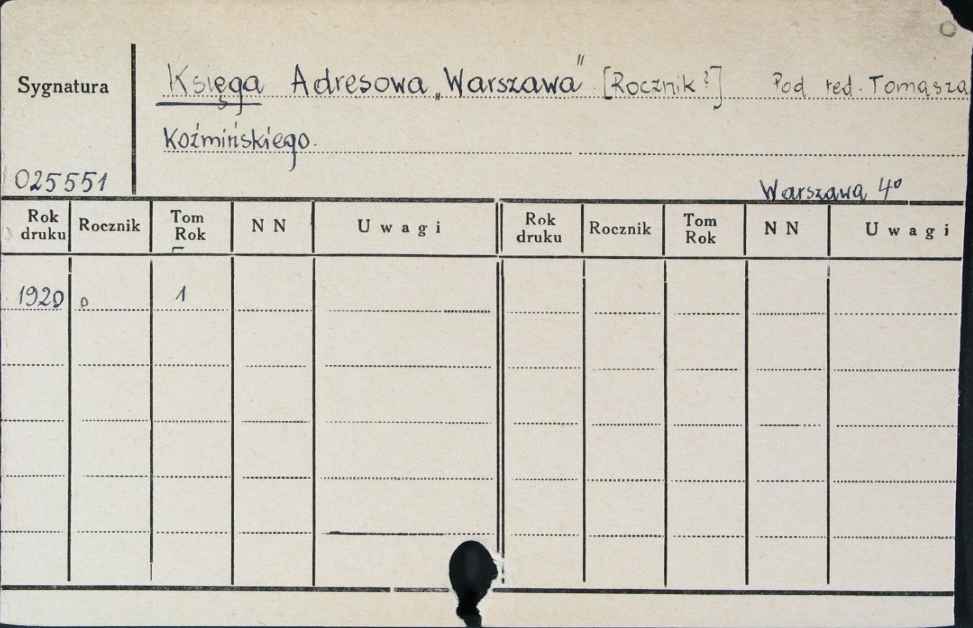 Sygnatura
Księga Adresowa „Warszawa” [Rocznik?] Pod red. Tomasza
Koźmińskiego.
025551
Warszawa 4°
Rok druku Rocznik Tom Rok N N Uwagi Rok druku Rocznik Tom Rok N N Uwagi
1920 o 1